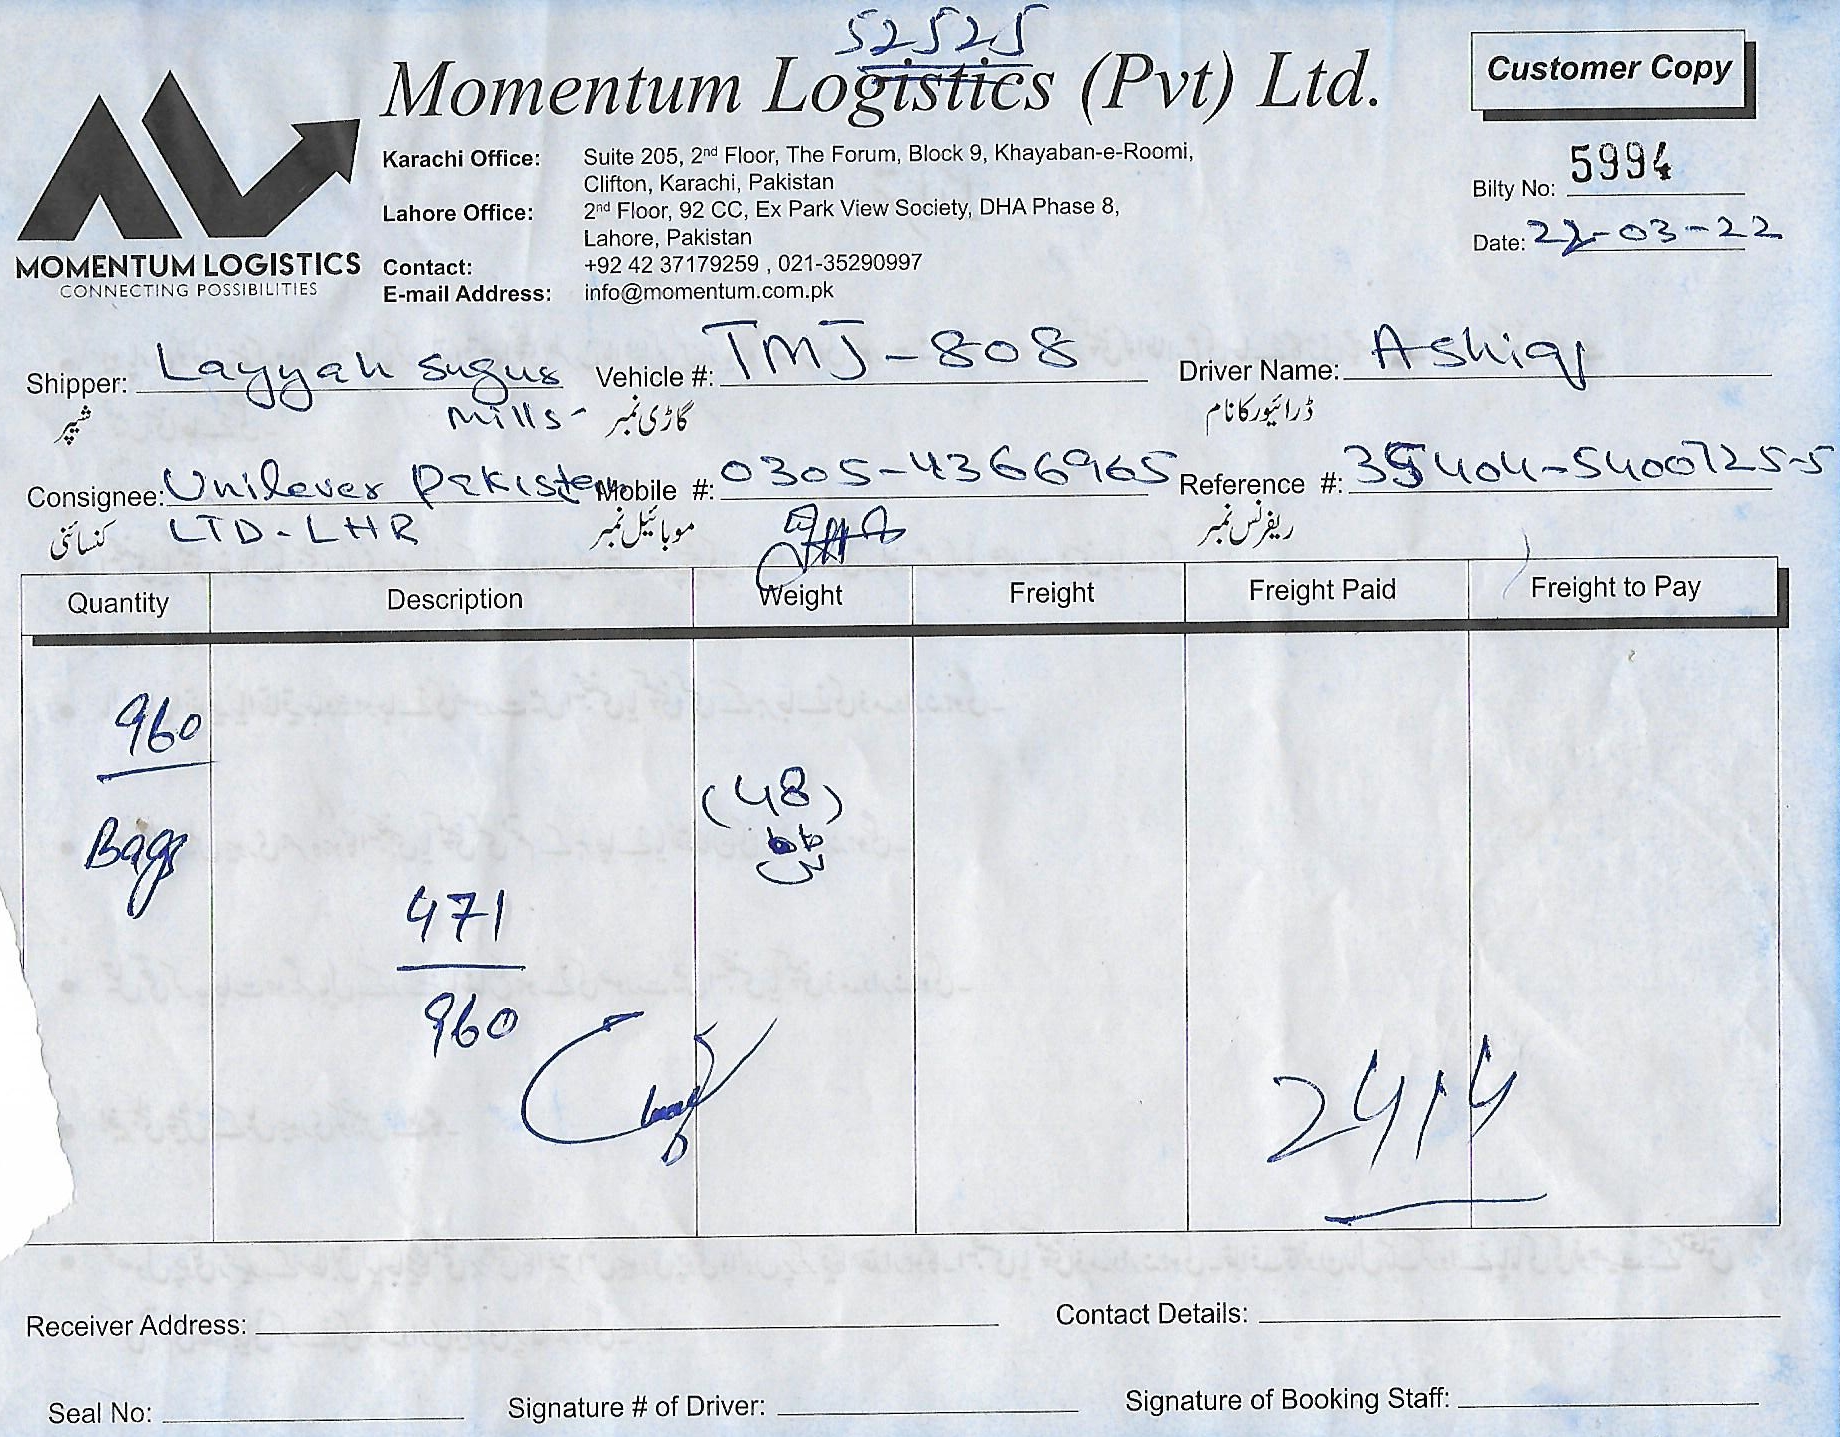 52525
Momentum Logistics (Pvt) Ltd.
Customer Copy
MOMENTUM LOGISTICS
CONNECTING POSSIBILITIES
Karachi Office: Suite 205, 2nd Floor, The Forum, Block 9, Khayaban-e-Roomi,
Clifton, Karachi, Pakistan
Lahore Office: 2nd Floor, 92 CC, Ex Park View Society, DHA Phase 8,
Lahore, Pakistan
Contact: +92 42 37179259 , 021-35290997
E-mail Address: info@momentum.com.pk
Bilty No: 5994
Date: 22-03-22
Shipper: Layyah Sugus Vehicle #: TMJ-808 Driver Name: Ashiq
Mills-
شیپر گاڑی نمبر ڈرائیور کا نام
Consignee: Unilever Pakistan Mobile #: 0305-4366965 Reference #: 35404-5400725-5
LTD-LHR
کنسائنی موبائیل نمبر ریفرنس نمبر
Quantity Description Weight Freight Freight Paid Freight to Pay
960
(48)
Bags
471
960
2414
Receiver Address: Contact Details:
Seal No: Signature # of Driver: Signature of Booking Staff: